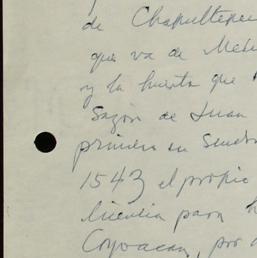 de Chapultepec
que va de Méxi
y la huerta que
Sazón de Juan
primero en
1543 el propio
licencia para h
Coyoacan, por